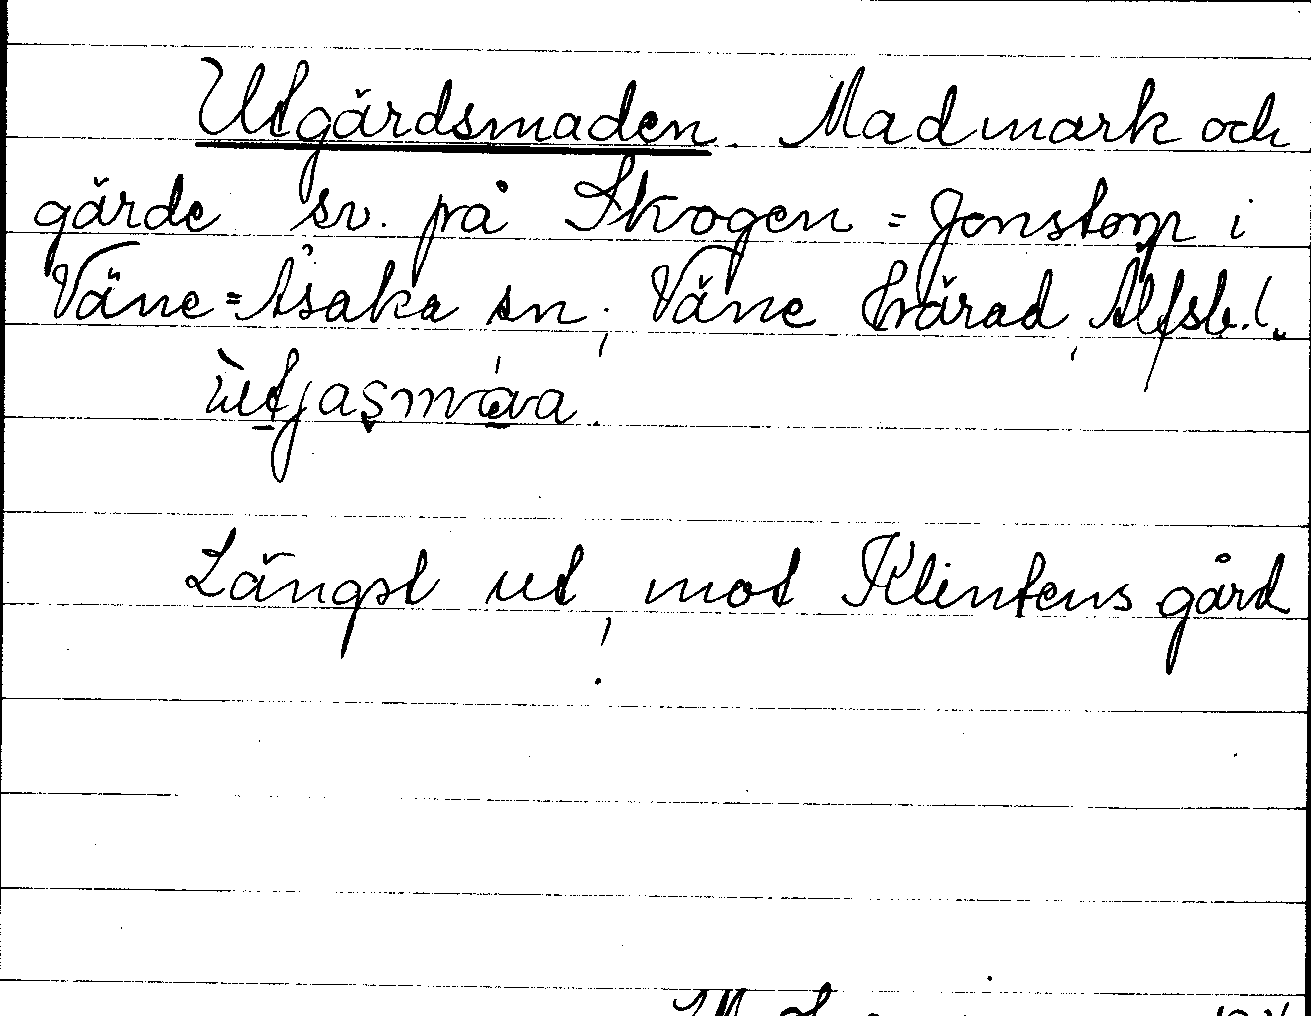 Utgärdsmaden. Madmark och
gärde sv. på Skogen = Jonstorp i
Väne = Åsaka sn, Väne härad, Älfsb. l.
Längst ut, mot Klintens gård
.